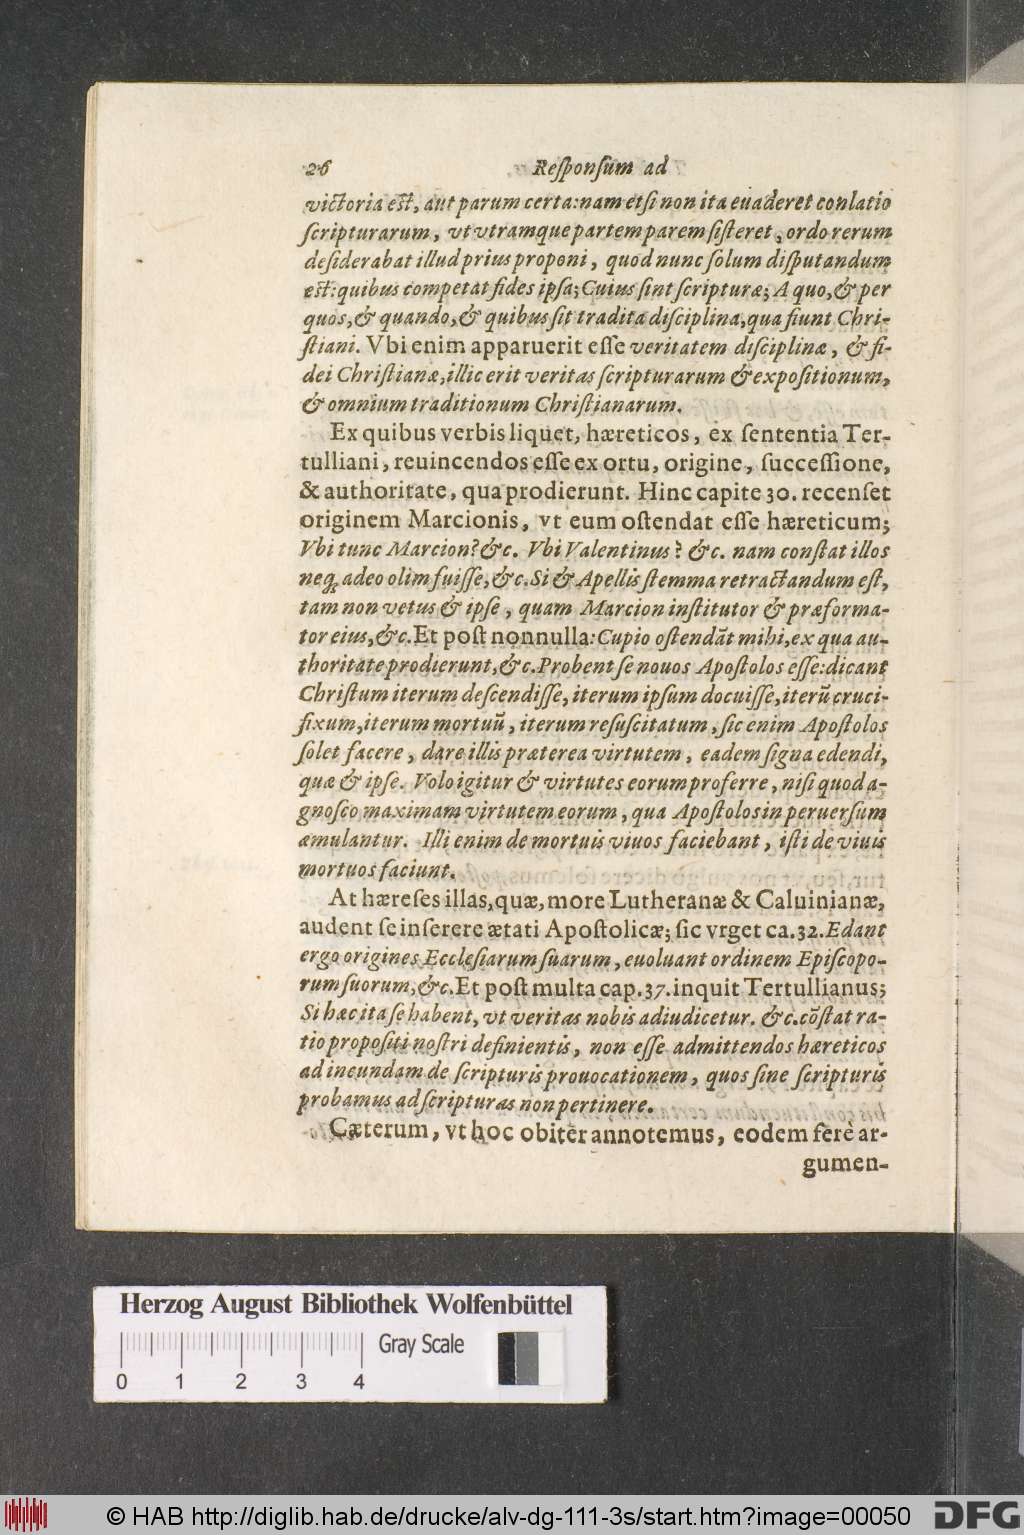 26 Reſponſum ad
victoria eſt, aut parum certa: nam etſi non ita euaderet conlatio
ſcripturarum, vt vtramque partem parem ſiſteret, ordo rerum
deſiderabat illud prius proponi, quod nunc ſolum diſputandum
eſt: quibus competat fides ipſa; Cuius ſint ſcripturæ; A quo, & per
quos, & quando, & quibus ſit tradita diſciplina, qua fiunt Chri-
ſtiani. Vbi enim apparuerit eſſe veritatem diſciplinæ, & fi-
dei Chriſtianæ, illic erit veritas ſcripturarum & expoſitionum,
& omnium traditionum Chriſtianarum.
Ex quibus verbis liquet, hæreticos, ex ſententia Ter-
tulliani, reuincendos eſſe ex ortu, origine, ſucceſſione,
& authoritate, qua prodierunt. Hinc capite 30. recenſet
originem Marcionis, vt eum oſtendat eſſe hæreticum;
Vbi tunc Marcion? &c. Vbi Valentinus? &c. nam conſtat illos
neq́ adeo olim fuiſſe, &c. Si & Apellis ſtemma retractandum eſt,
tam non vetus & ipſe, quam Marcion inſtitutor & præforma-
tor eius, &c. Et poſt nonnulla: Cupio oſtendãt mihi, ex qua au-
thoritate prodierunt, &c. Probent ſe nouos Apoſtolos eſſe: dicant
Chriſtum iterum deſcendiſſe, iterum ipſum docuiſſe, iterũ cruci-
fixum, iterum mortuũ, iterum reſuſcitatum, ſic enim Apoſtolos
ſolet facere, dare illis præterea virtutem, eadem ſigna edendi,
quæ & ipſe. Volo igitur & virtutes eorum proferre, niſi quod a-
gnoſco maximam virtutem eorum, qua Apoſtolos in peruerſum
æmulantur. Illi enim de mortuis viuos faciebant, iſti de viuis
mortuos faciunt.
At hæreſes illas, quæ, more Lutheranæ & Caluinianæ,
audent ſe inſerere ætati Apoſtolicæ; ſic vrget ca. 32. Edant
ergo origines Eccleſiarum ſuarum, euoluant ordinem Epiſcopo-
rum ſuorum, &c. Et poſt multa cap. 37. inquit Tertullianus;
Si hæc ita ſe habent, vt veritas nobis adiudicetur. &c. cõſtat ra-
tio propoſiti noſtri definientis, non eſſe admittendos hæreticos
ad ineundam de ſcripturis prouocationem, quos ſine ſcripturis
probamus ad ſcripturas non pertinere.
Cæterum, vt hoc obiter annotemus, eodem ferè ar-
gumen-
Herzog August Bibliothek Wolfenbüttel
Gray Scale
0 1 2 3 4
© HAB http://diglib.hab.de/drucke/alv-dg-111-3s/start.htm?image=00050 DFG